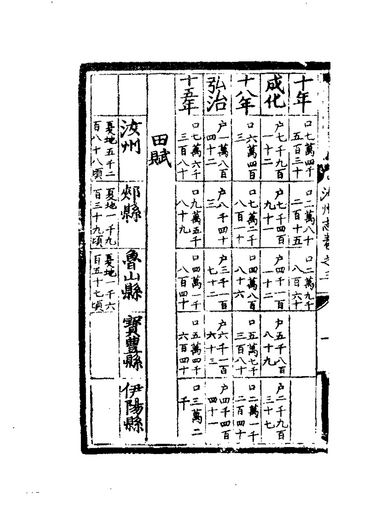 汝州志卷之三
十年
口七萬四千
五百三十
口二萬九千
八百六十
成化
户七千九百
七十二
户五千八百
八十九
户二千九百
三十七
十八年
口七萬二千
八百一十
口四萬八百
八十六
口五萬七千
三百八十
口二萬一千
二百四十
弘治
户一萬八百
四十二
户八千四十
三
户三千二百
七十二
户六千一百
六十三
户四千四百
四十一
十五年
三百八十
口九萬五千
八十九
口四萬一千
八百四十
口五萬四千
六百四十
口三萬二
千
田賦
汝州
夏地五千二
百八十八頃
郟縣
夏地一千九
百三十九頃
魯山縣
夏地一千六
百五十七頃
寶豐縣
伊陽縣